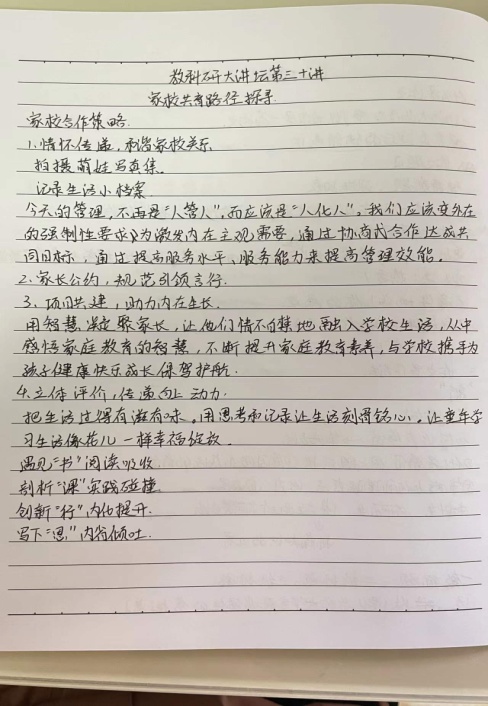 教科研大讲坛第三十讲
家校共育路径探寻
家校合作策略.
1.情怀传递,和谐家校关系
拍摄萌娃写真集.
记录生活小档案
今天的管理,不再是“人管人”,而应该是“人化人”,我们应该变外在
的强制性要求为激发内在主观需要,通过协商式合作达成共
同目标,通过提高服务水平、服务能力来提高管理效能.
2.家长公约,规范引领言行.
3.项目共建,助力内在生长.
用智慧凝聚家长,让他们情不自禁地融入学校生活,从中
感悟家庭教育的智慧,不断提升家庭教育素养,与学校携手为
孩子健康快乐成长保驾护航.
4.立体评价,传递向上动力.
把生活过得有滋有味,用思考和记录让生活刻骨铭心,让童年学
习生活像花儿一样幸福绽放.
遇见“书”阅读吸收
剖析“课”实践碰撞.
创新“行”内化提升.
写下“思”内省倾吐.